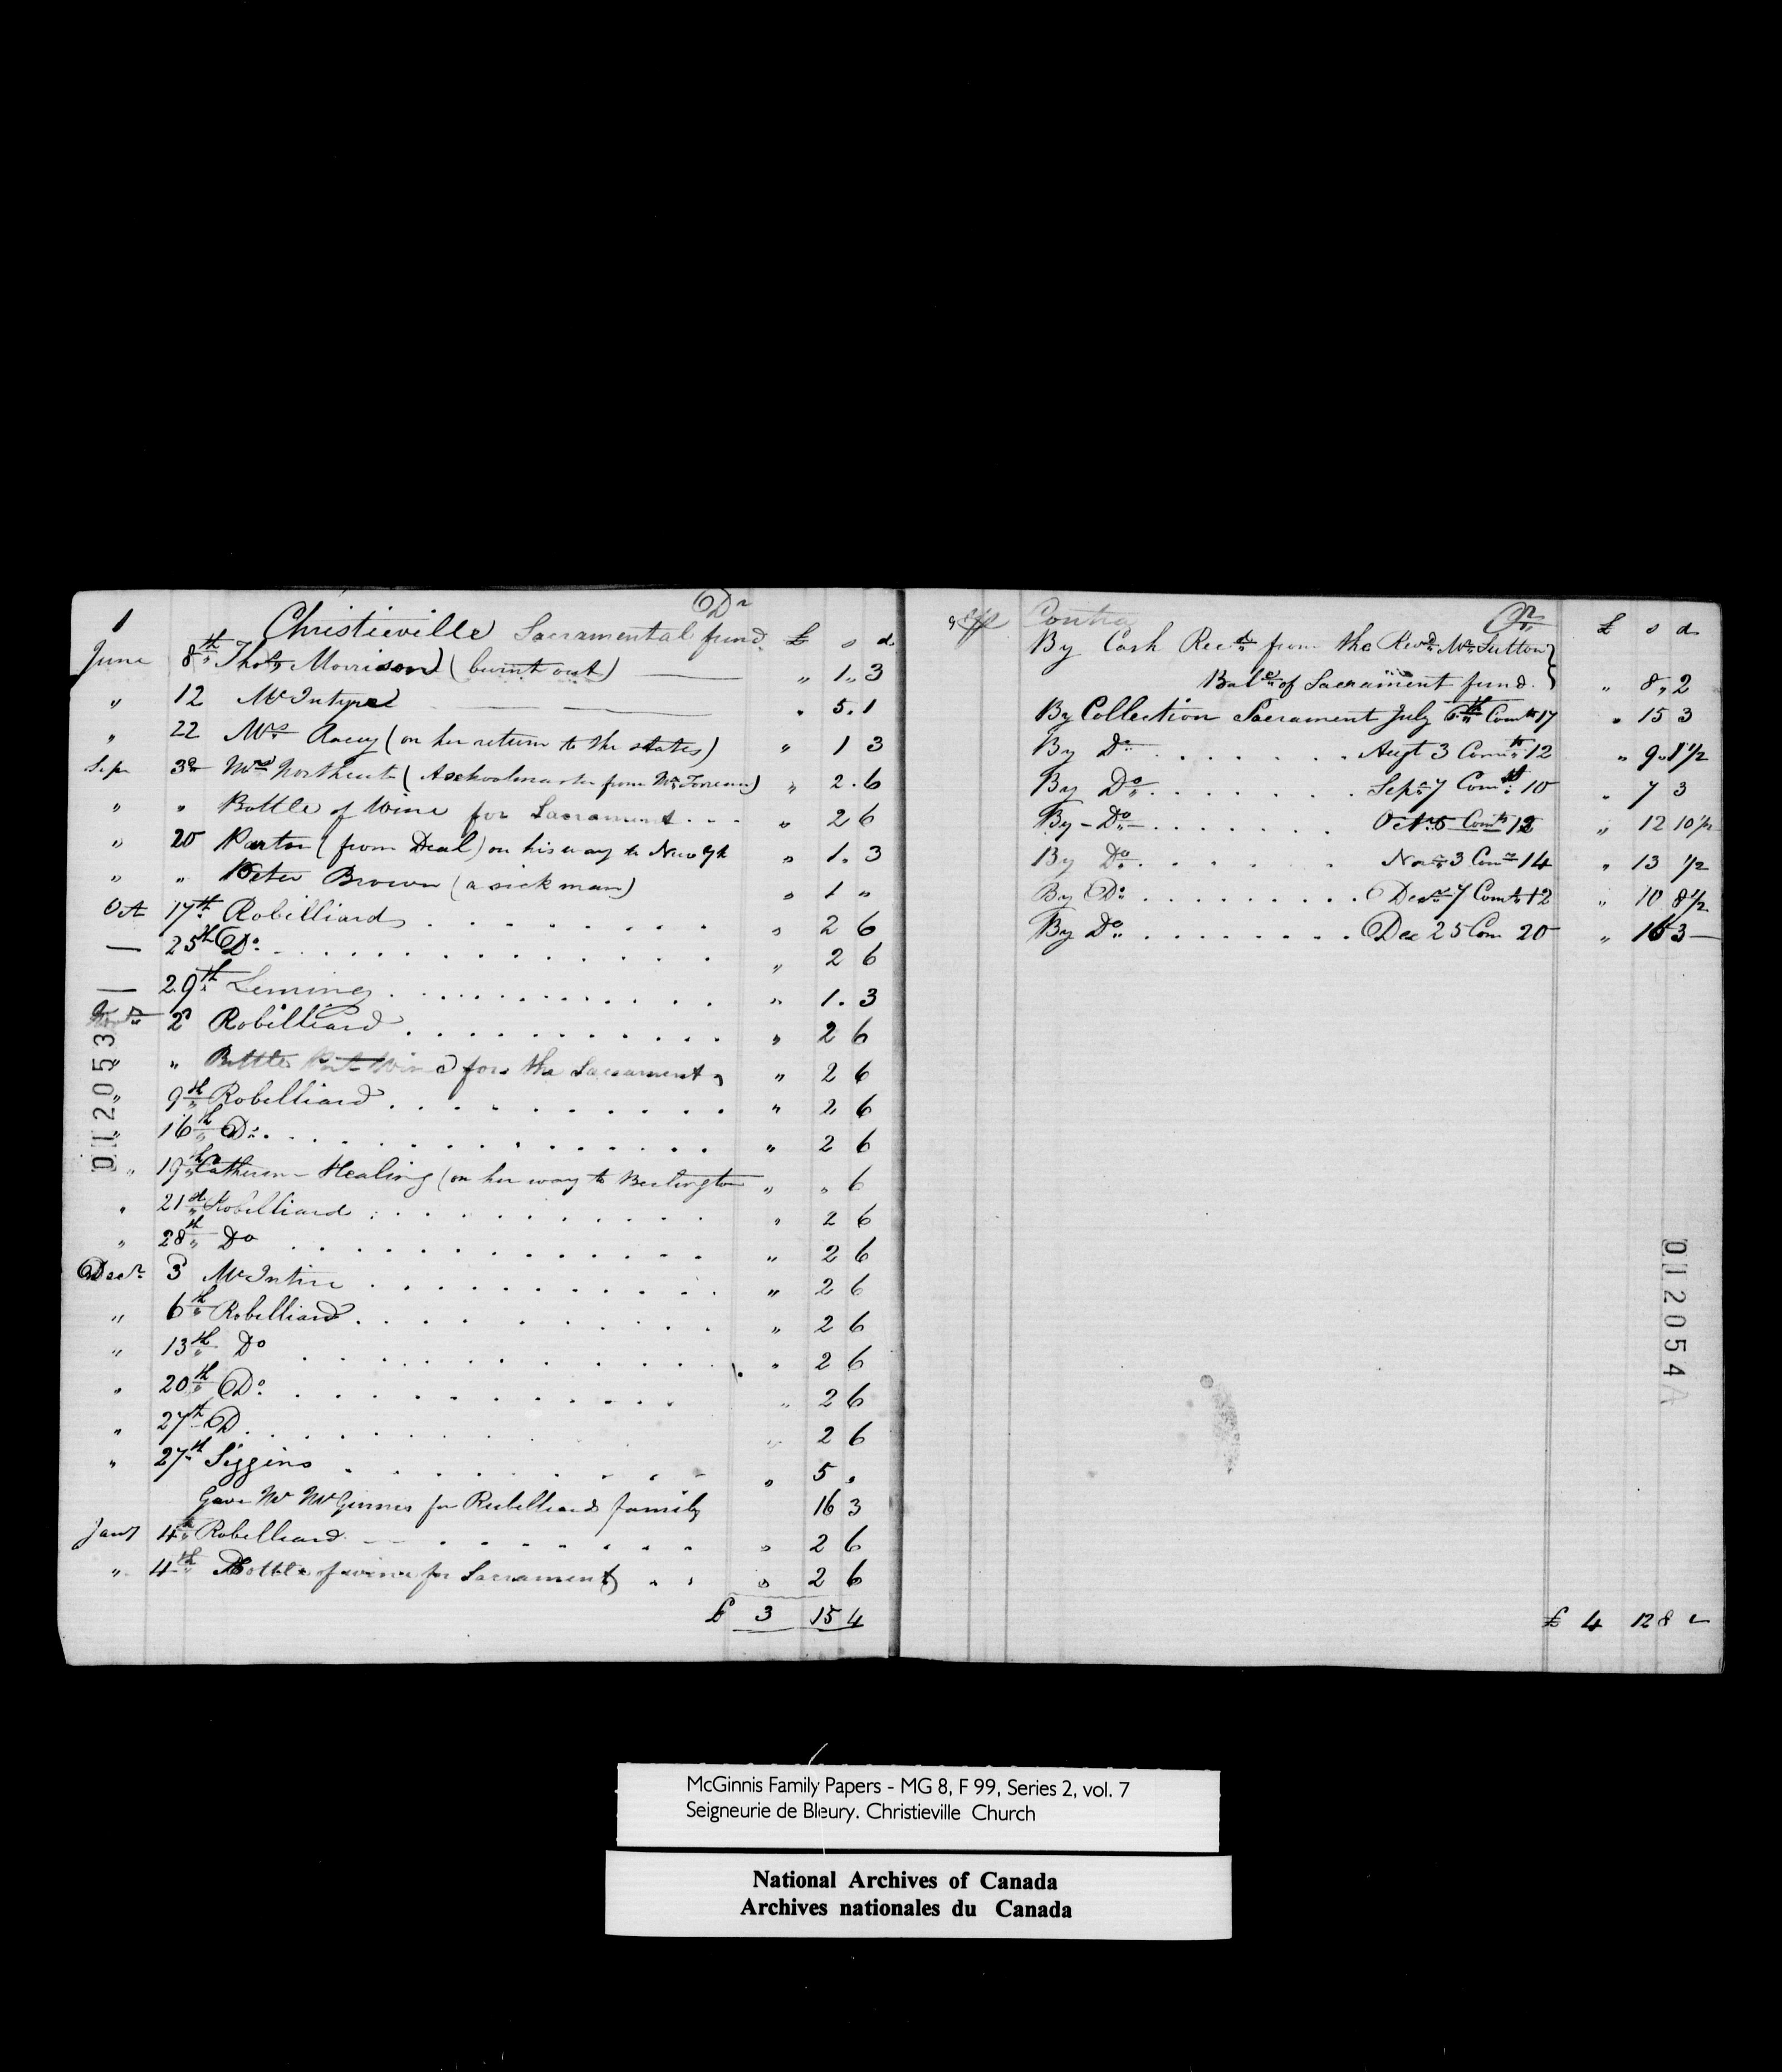 1
Christieville Sacramental fund Dr £ s d
June 8th Thos Morrison (burnt out) " 1" 3
" 12 McIntyre " 5.1
" 22 Mrs (on her return to the states) " 1 3
Sep 3d Northcut (A schoolmaster from " 2.6
" " Bottle of Wine for Sacrament " 2 6
" 20 Parton (from Deal) on his way to New Yk " 1. 3
" " Peter Brown (a sick man) " 1 "
Oct 17th Robilliard " 2 6
— 25th Do " 2 6
— 29th Leming " 1. 3
2d Robilliard " 2 6
" " Bottle Port Wine for the Sacrament " 2 6
" 9th Robilliard " 2 6
" 16th Do " 2 6
" 19th Catheren Healing (on her way to Burlington " " 6
" 21st Robilliard " 2 6
" 28th Do " 2 6
Decr 3 McIntire " 2 6
" 6th Robilliard " 2 6
" 13th Do " 2 6
" 20th Do " 2 6
" 27th D " 2 6
" 27th Siggins " 5 "
Gave Mr McGinnes for Robilliards family 16 3
Jany 4th Robilliard " 2 6
" 4th Bottle of wine for Sacrament " 2 6
£ 3 15 4
012053
Contra Cr £ s d
By Cash Recd from the Revd Mr Sutton
Balce of Sacrament fund. " 8" 2
By Collection Sacrament July 6th Comts 17 " 15 3
By Do Augt 3 Comts 12 " 9" 1 1/2
By Do Sepr 7 Comts 10 " 7 3
By - Do Octr 5 Comts 12 " 12 10 1/2
By Do Novr 3 Comts 14 " 13 1/2
By Do Decr 7 Comts 12 " 10 8 1/2
By Do Dec 25 Com 20 " 16 3 —
£ 4 12 8
012054A
McGinnis Family Papers - MG 8, F 99, Series 2, vol. 7
Seigneurie de Bleury. Christieville Church
National Archives of Canada
Archives nationales du Canada